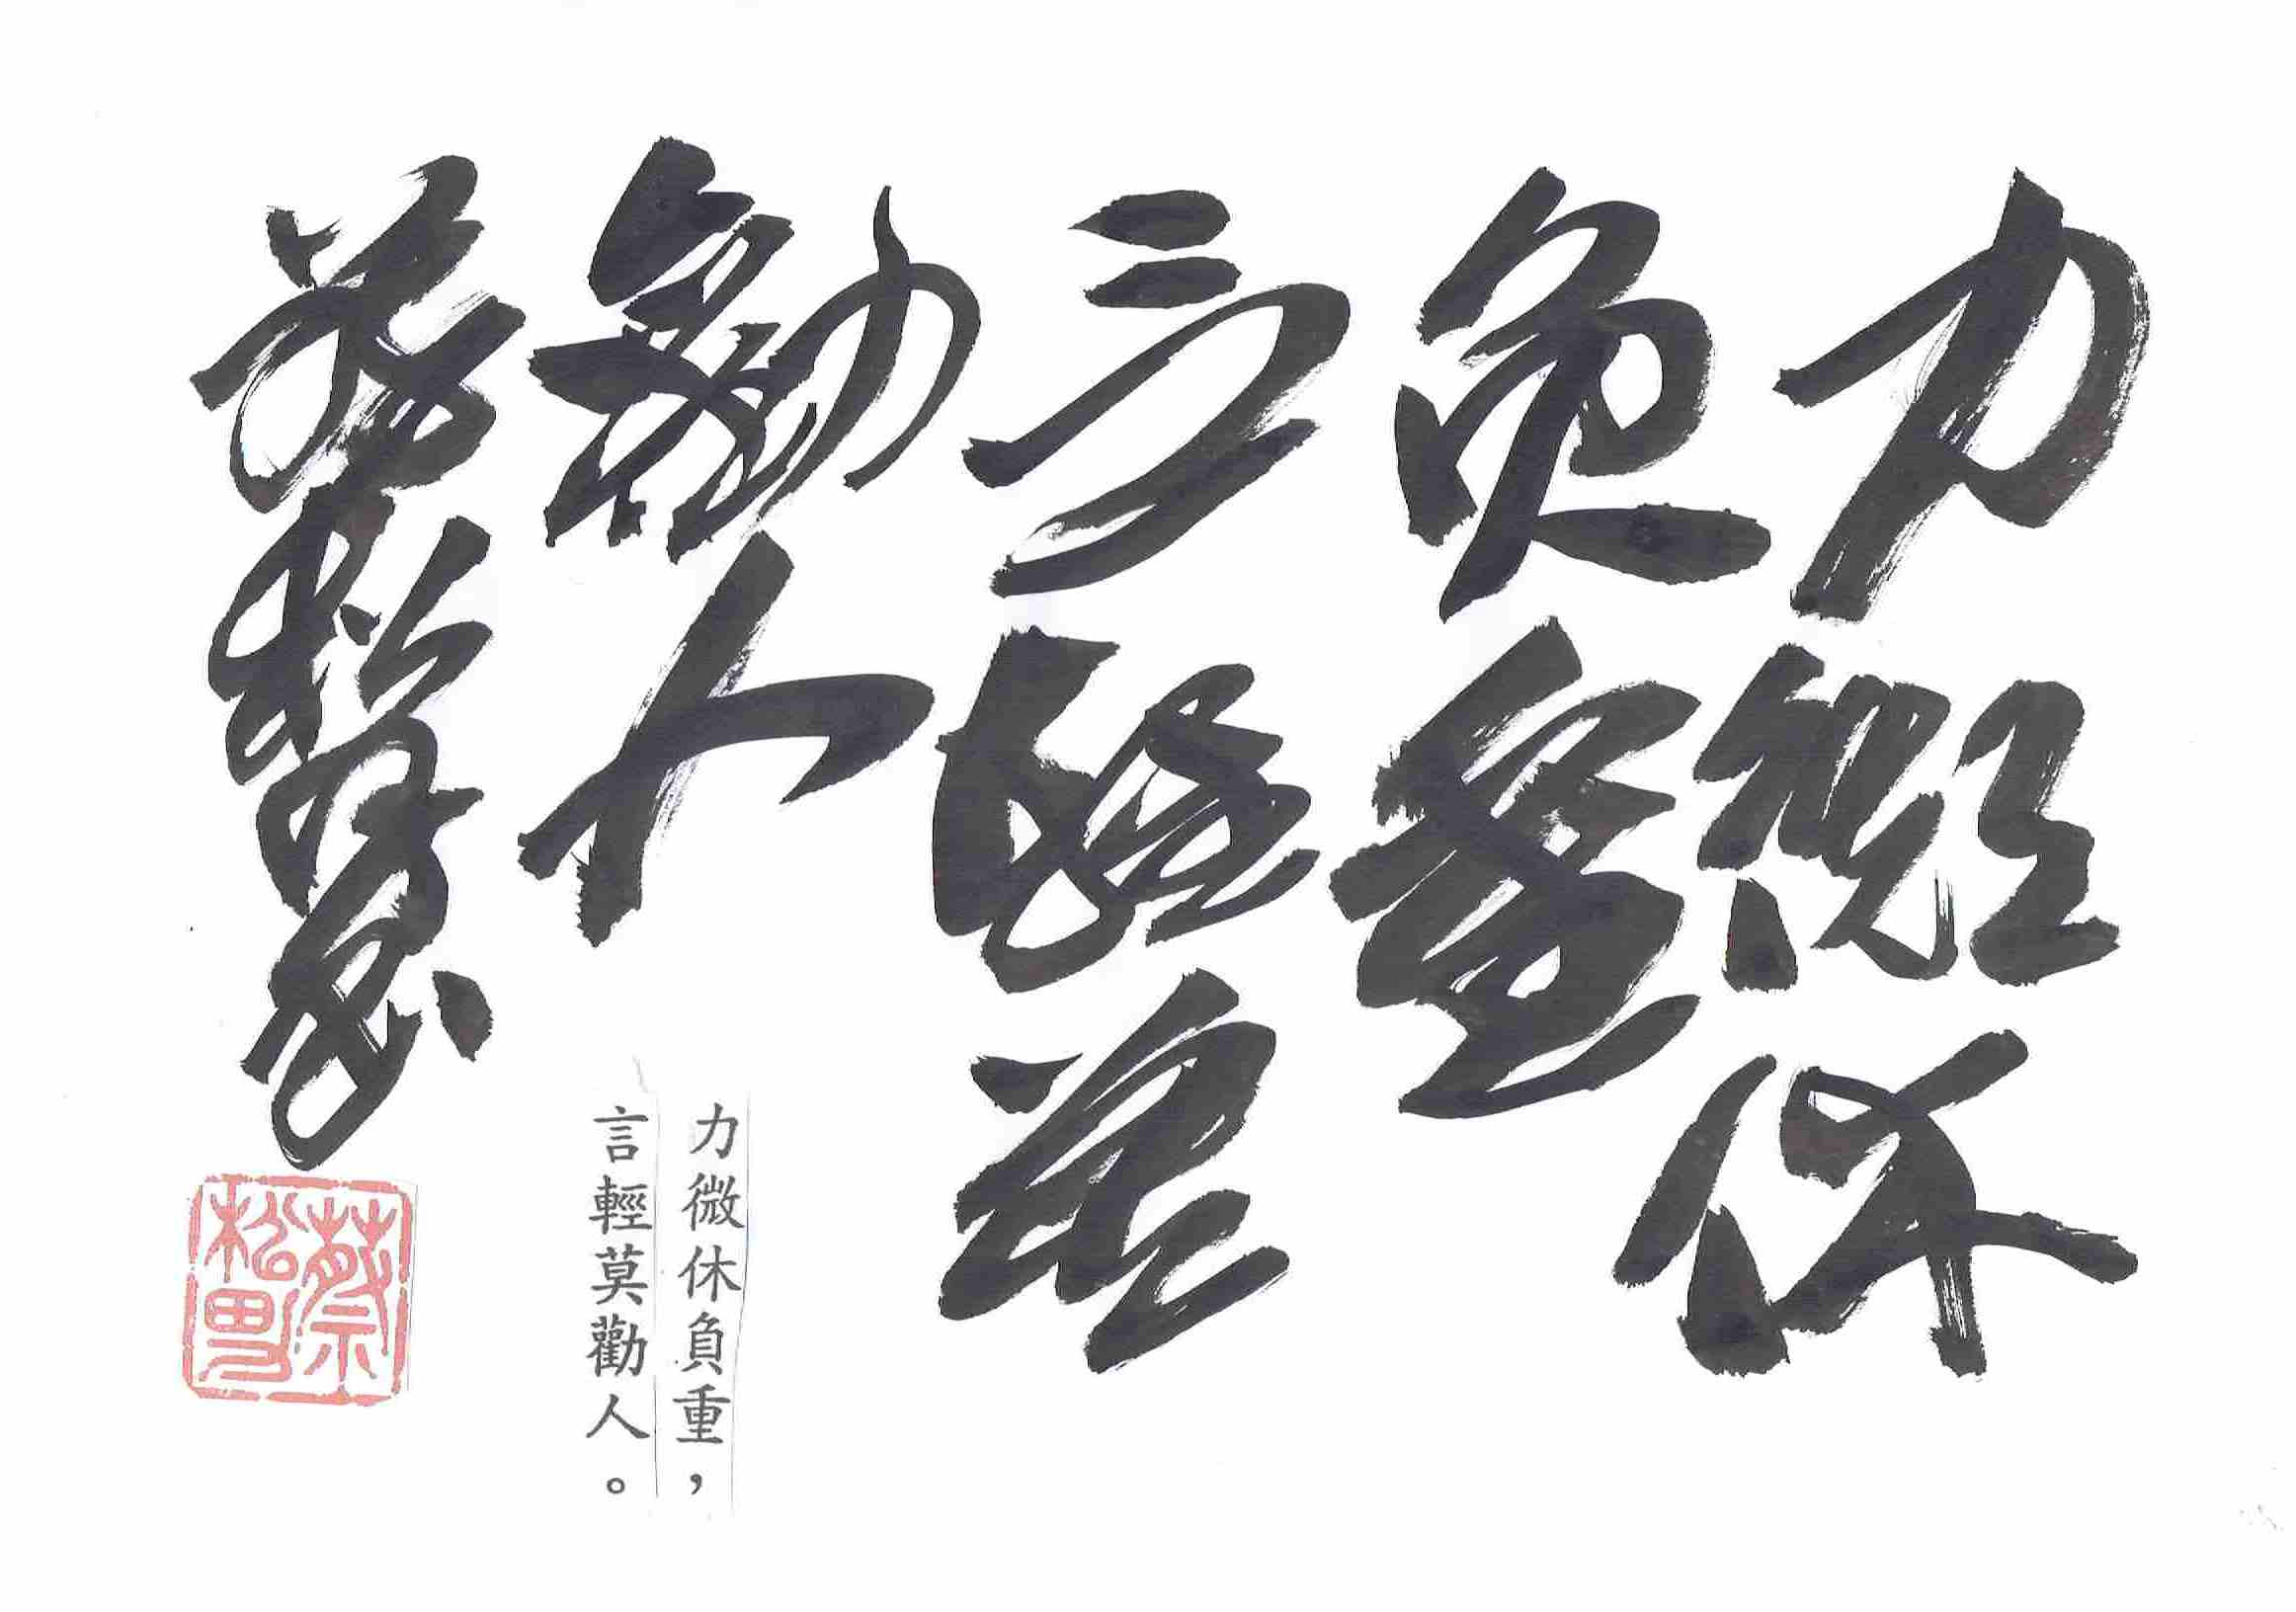 力微休
負重
言輕莫
勸人
力微休負重，
言輕莫勸人。
蔡松男
蔡
松男